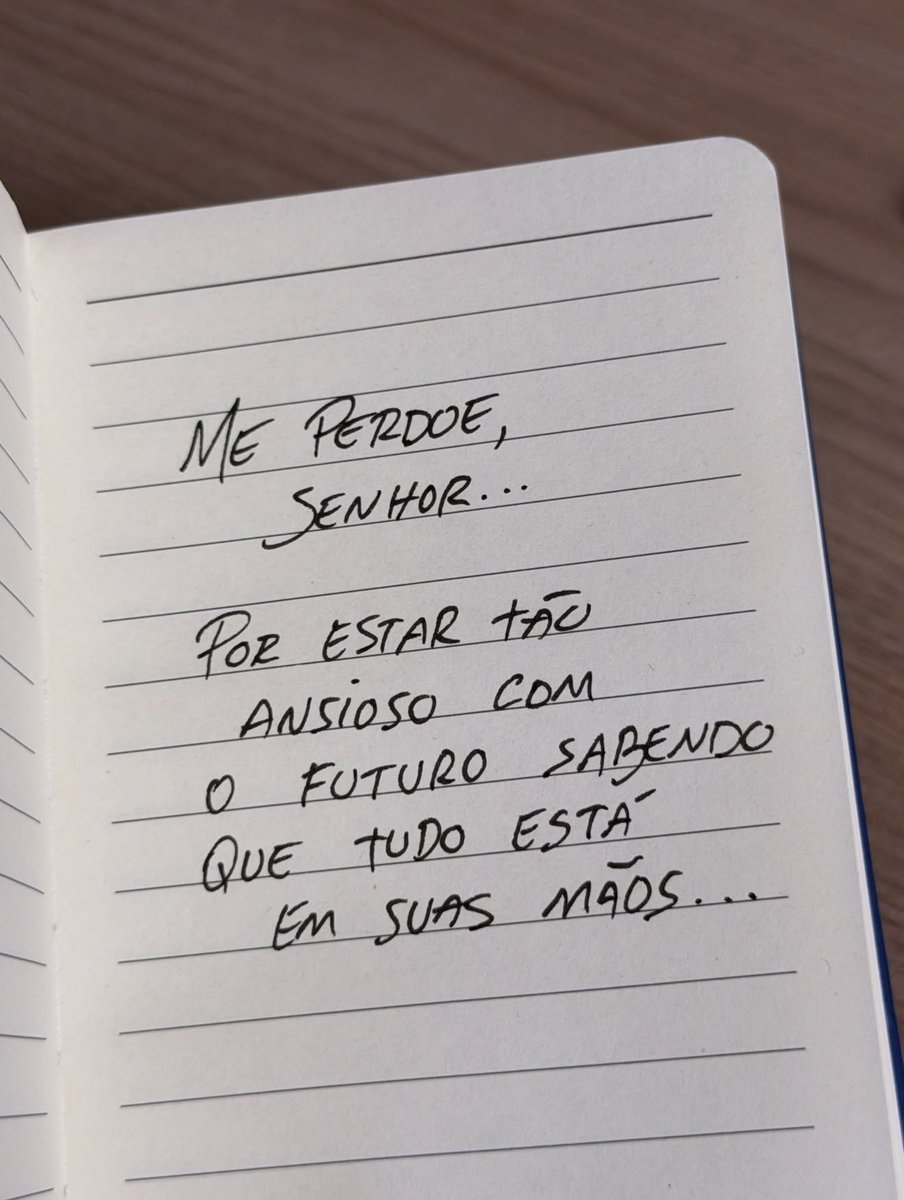 ME PERDOE,
SENHOR...
POR ESTAR TÃO
ANSIOSO COM
O FUTURO SABENDO
QUE TUDO ESTÁ
EM SUAS MÃOS...